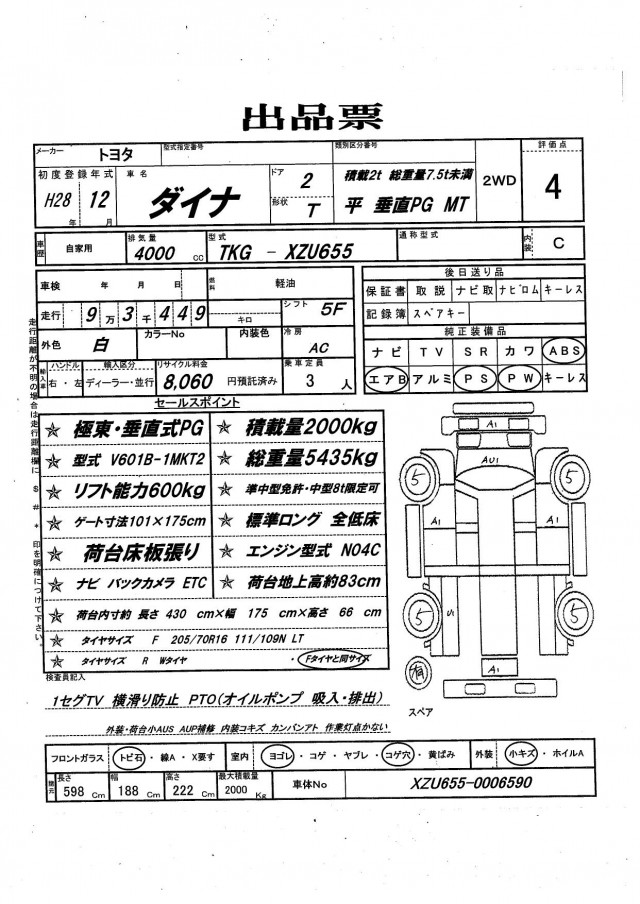 出品票
メーカー トヨタ 型式指定番号 類別区分番号 評価点
初度登録年式 車名 ドア 2 積載2t 総重量7.5t未満 2WD 4
H28 年 12 月 ダイナ 形状 T 平 垂直PG MT
車歴 自家用 排気量 4000 CC 型式 TKG － XZU655 通称型式 内装 C
車検 年 月 日 燃料 軽油 後日送り品
保証書 取説 ナビ取 ナビロム キーレス
走行 9万3千449 キロ シフト 5F 記録簿 スペアキー
外色 白 カラーNo 内装色 冷房 AC 純正装備品
ナビ TV SR カワ ABS
輸入車 ハンドル 右・左 輸入区分 ディーラー・並行 リサイクル料金 8,060 円預託済み 乗車定員 3 人 エアB アルミ PS PW キーレス
走行距離が不明の場合は走行距離欄に $ # * 印を明確につけて下さい。
セールスポイント
☆ 極東・垂直式PG ☆ 積載量2000kg
☆ 型式 V601B-1MKT2 ☆ 総重量5435kg
☆ リフト能力600kg ☆ 準中型免許・中型8t限定可
☆ ゲート寸法101×175cm ☆ 標準ロング 全低床
☆ 荷台床板張り ☆ エンジン型式 N04C
☆ ナビ バックカメラ ETC ☆ 荷台地上高約83cm
☆ 荷台内寸約 長さ 430 cm×幅 175 cm×高さ 66 cm
☆ タイヤサイズ F 205/70R16 111/109N LT
☆ タイヤサイズ R Wタイヤ ・Fタイヤと同サイズ
A1
AU1
5 5
A1 A1
5 U1 5
A1
有
スペア
検査員記入
1セグTV 横滑り防止 PTO(オイルポンプ 吸入・排出)
外装・荷台小AUS AUP補修 内装コキズ カンバンアト 作業灯点かない
フロントガラス トビ石・線A・X要す 室内 ヨゴレ・コゲ・ヤブレ・コゲ穴・黄ばみ 外装 小キズ・ホイルA
諸元 長さ 598 Cm 幅 188 Cm 高さ 222 Cm 最大積載量 2000 Kg 車体No XZU655-0006590